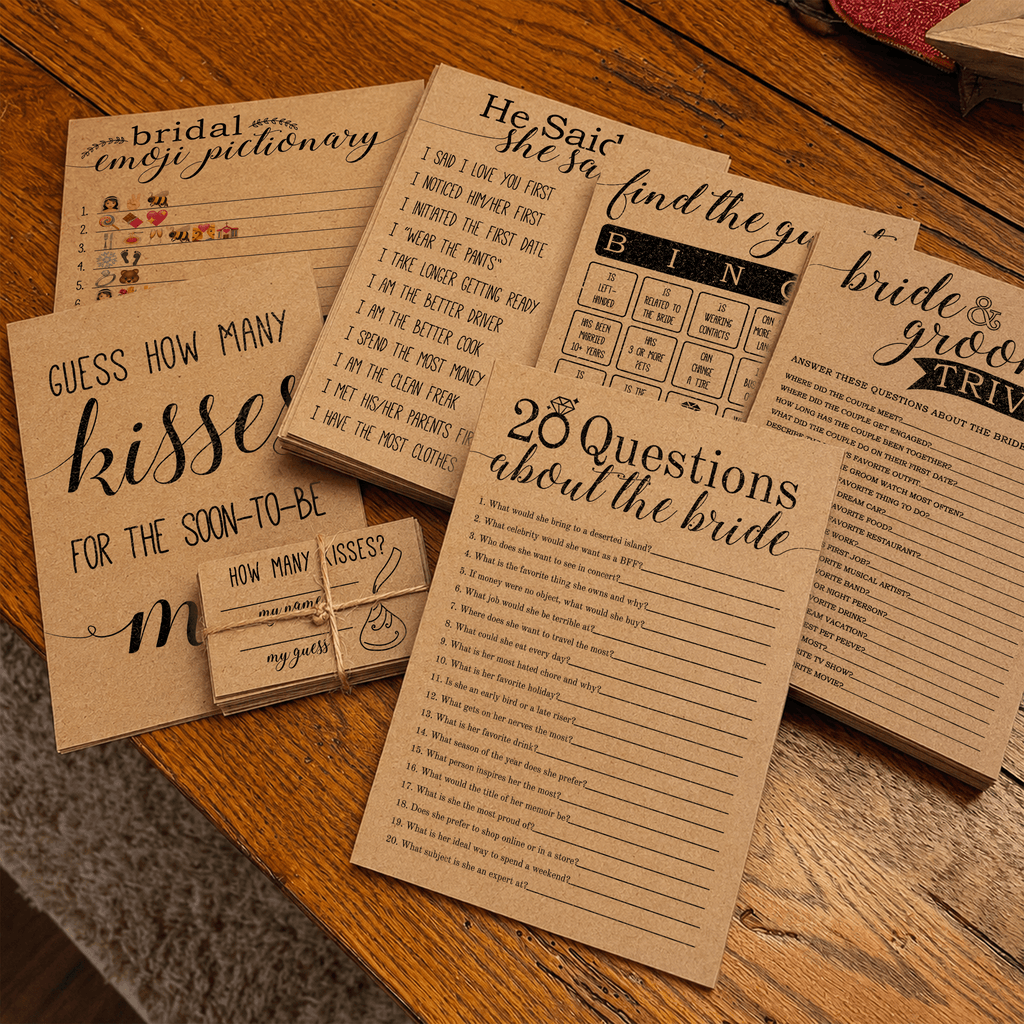 bridal
emoji pictionary
1.
2.
3.
4.
5.
6
He Said
she sa
I SAID I LOVE YOU FIRST
I NOTICED HIM/HER FIRST
I INITIATED THE FIRST DATE
I "WEAR THE PANTS"
I TAKE LONGER GETTING READY
I AM THE BETTER DRIVER
I AM THE BETTER COOK
I SPEND THE MOST MONEY
I AM THE CLEAN FREAK
I MET HIS/HER PARENTS FIR
I HAVE THE MOST CLOTHES
find the gu
B I N G
IS LEFT-HANDED
IS RELATED TO THE BRIDE
IS WEARING CONTACTS
CAN MORE LAN
HAS BEEN MARRIED 10+ YEARS
HAS 3 OR MORE PETS
CAN CHANGE A TIRE
IS
IS THE
bride &
groo
TRIV
ANSWER THESE QUESTIONS ABOUT THE BRIDE
WHERE DID THE COUPLE MEET?
WHERE DID THE COUPLE GET ENGAGED?
HOW LONG HAS THE COUPLE BEEN TOGETHER?
WHAT DID THE COUPLE DO ON THEIR FIRST DATE?
DESCRIBE FAVORITE OUTFIT
GROOM WATCH MOST OFTEN?
FAVORITE THING TO DO?
DREAM CAR?
FAVORITE FOOD?
FAVORITE RESTAURANT?
WORK?
FIRST JOB?
FAVORITE MUSICAL ARTIST?
FAVORITE BAND?
OR NIGHT PERSON?
FAVORITE DRINK?
EAM VACATION?
EST PET PEEVE?
MOST?
RITE TV SHOW?
RITE MOVIE?
GUESS HOW MANY
kisses
FOR THE SOON-TO-BE
m
HOW MANY KISSES?
my name
my guess
20 Questions
about the bride
1. What would she bring to a deserted island?
2. What celebrity would she want as a BFF?
3. Who does she want to see in concert?
4. What is the favorite thing she owns and why?
5. If money were no object, what would she buy?
6. What job would she be terrible at?
7. Where does she want to travel the most?
8. What could she eat every day?
9. What is her most hated chore and why?
10. What is her favorite holiday?
11. Is she an early bird or a late riser?
12. What gets on her nerves the most?
13. What is her favorite drink?
14. What season of the year does she prefer?
15. What person inspires her the most?
16. What would the title of her memoir be?
17. What is she the most proud of?
18. Does she prefer to shop online or in a store?
19. What is her ideal way to spend a weekend?
20. What subject is she an expert at?